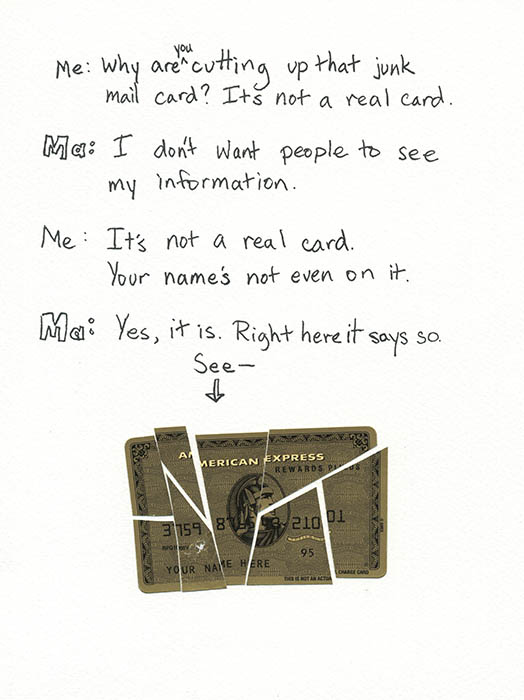 Me: Why are you cutting up that junk
mail card? It's not a real card.
Ma: I don't want people to see
my information.
Me: It's not a real card.
Your name's not even on it.
Ma: Yes, it is. Right here it says so.
See—
AMERICAN EXPRESS
REWARDS
3759 210 01
95
YOUR NAME HERE
THIS IS NOT AN ACTUA CHARGE CARD